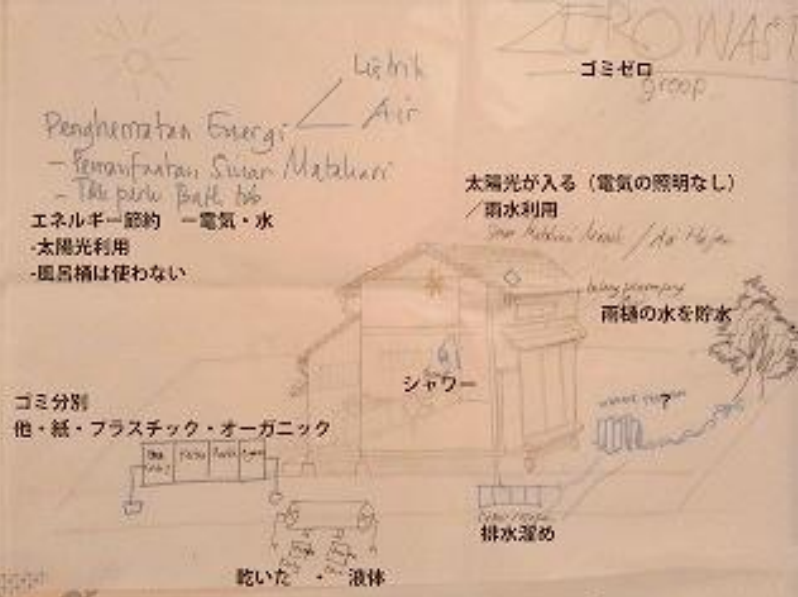 ZERO WAST
ゴミゼロ
group
Listrik
Air
Penghematan Energi
- Pemanfaatan Sinar Matahari
- Tdk perlu Bath tub
エネルギー節約　ー電気・水
-太陽光利用
-風呂桶は使わない
太陽光が入る（電気の照明なし）
／雨水利用
Sinar Matahari Masuk / Air Hujan
雨樋の水を貯水
シャワー
?
ゴミ分別
他・紙・プラスチック・オーガニック
排水溜め
乾いた　・　液体